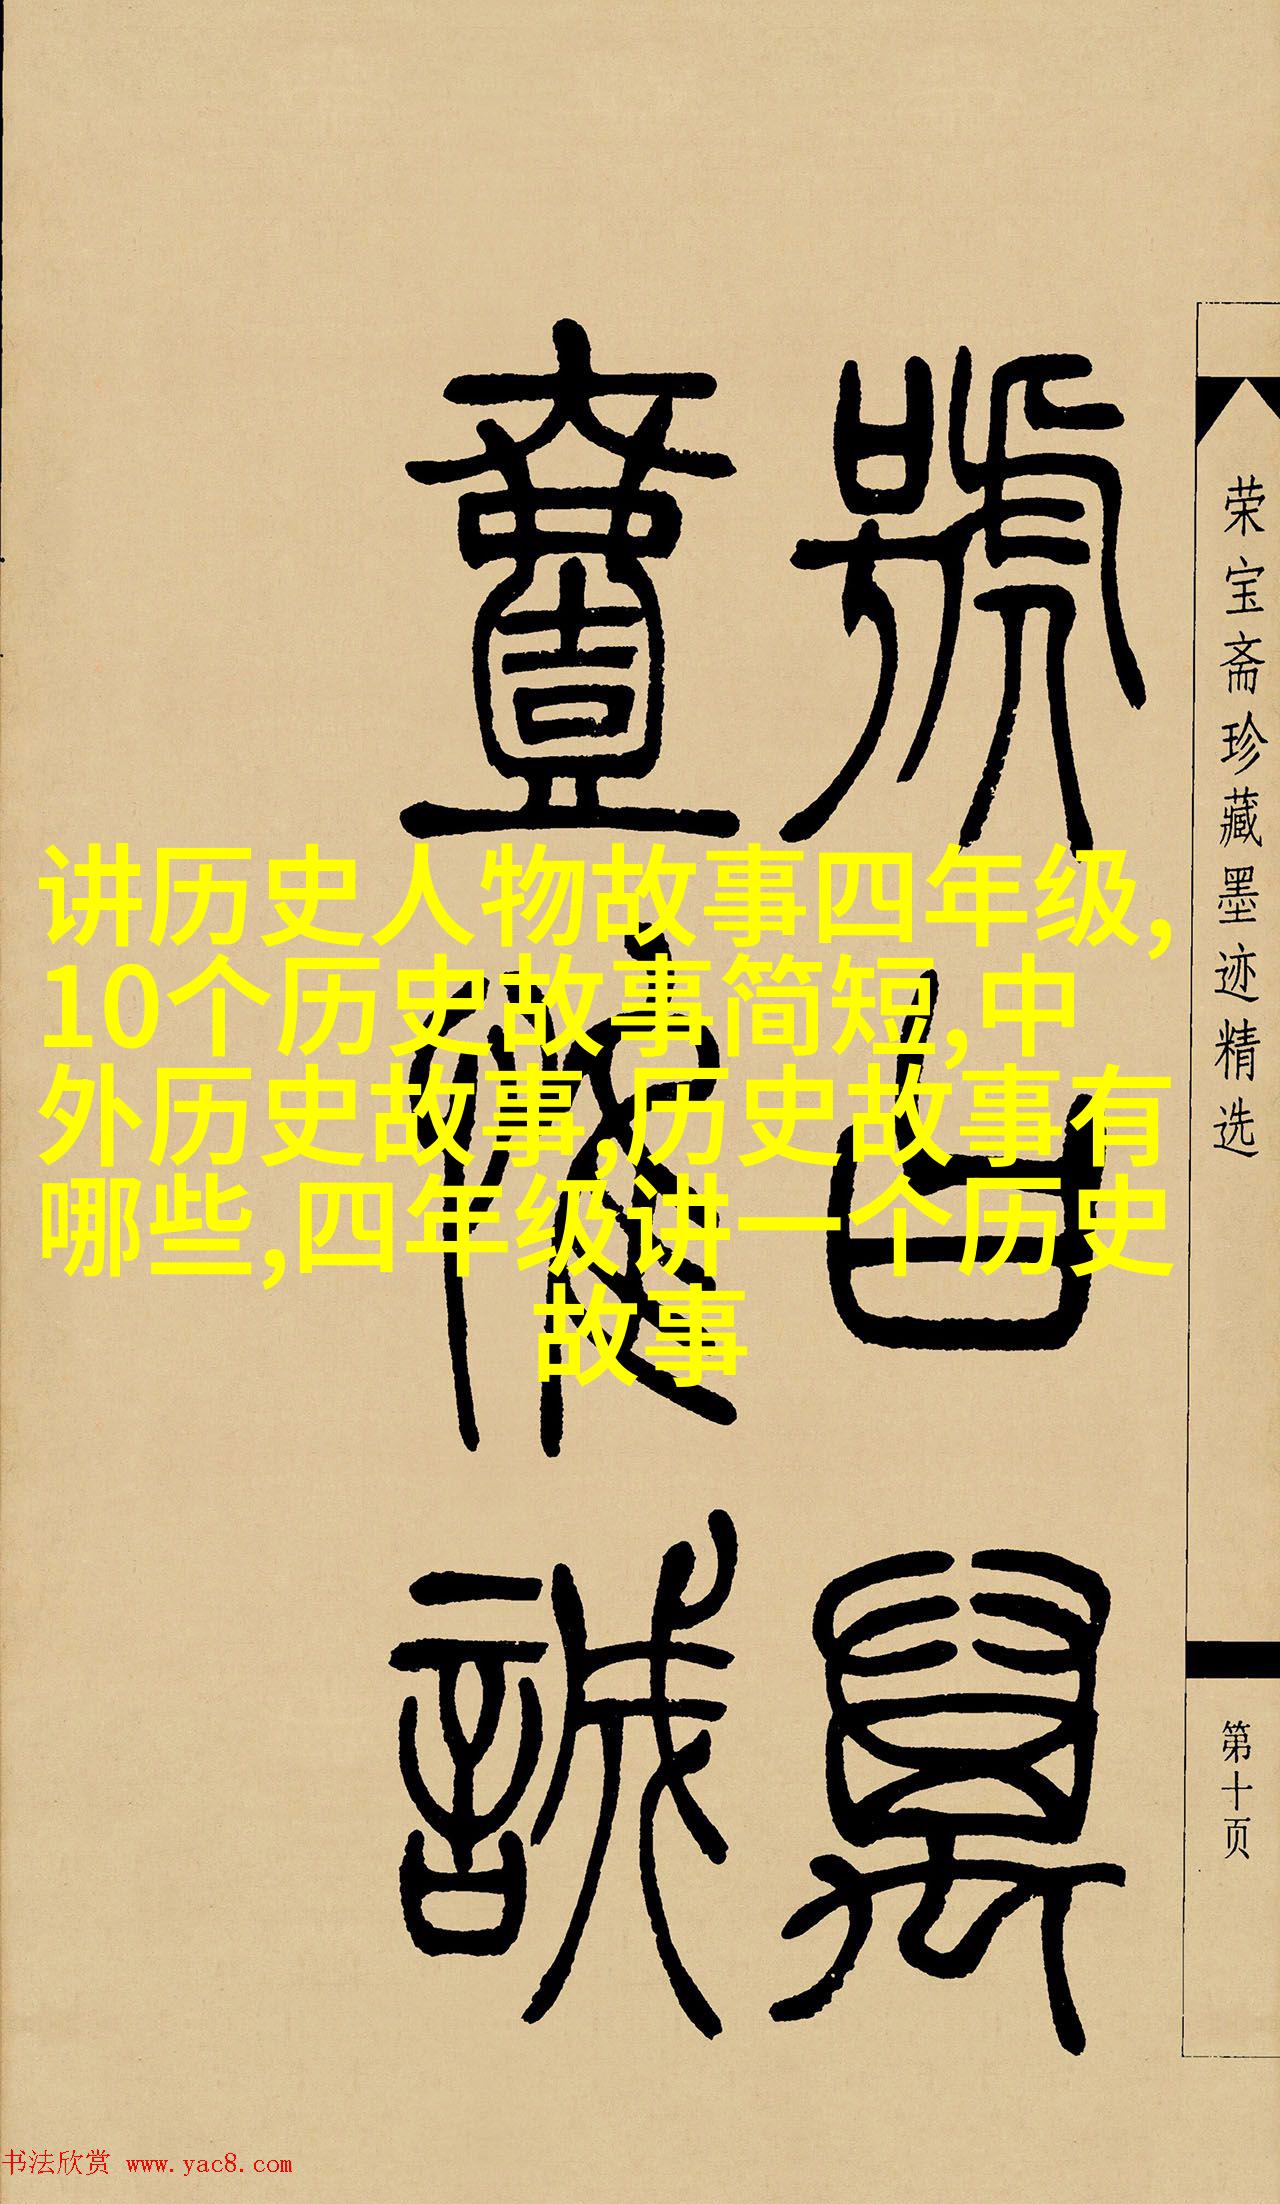 讲历史人物故事四年级,
10个历史故事简短,中
外历史故事,历史故事有
哪些,四年级讲一个历史
故事
荣宝斋珍藏墨迹精选
第十页
號
誠
书法欣赏 www.yac8.com